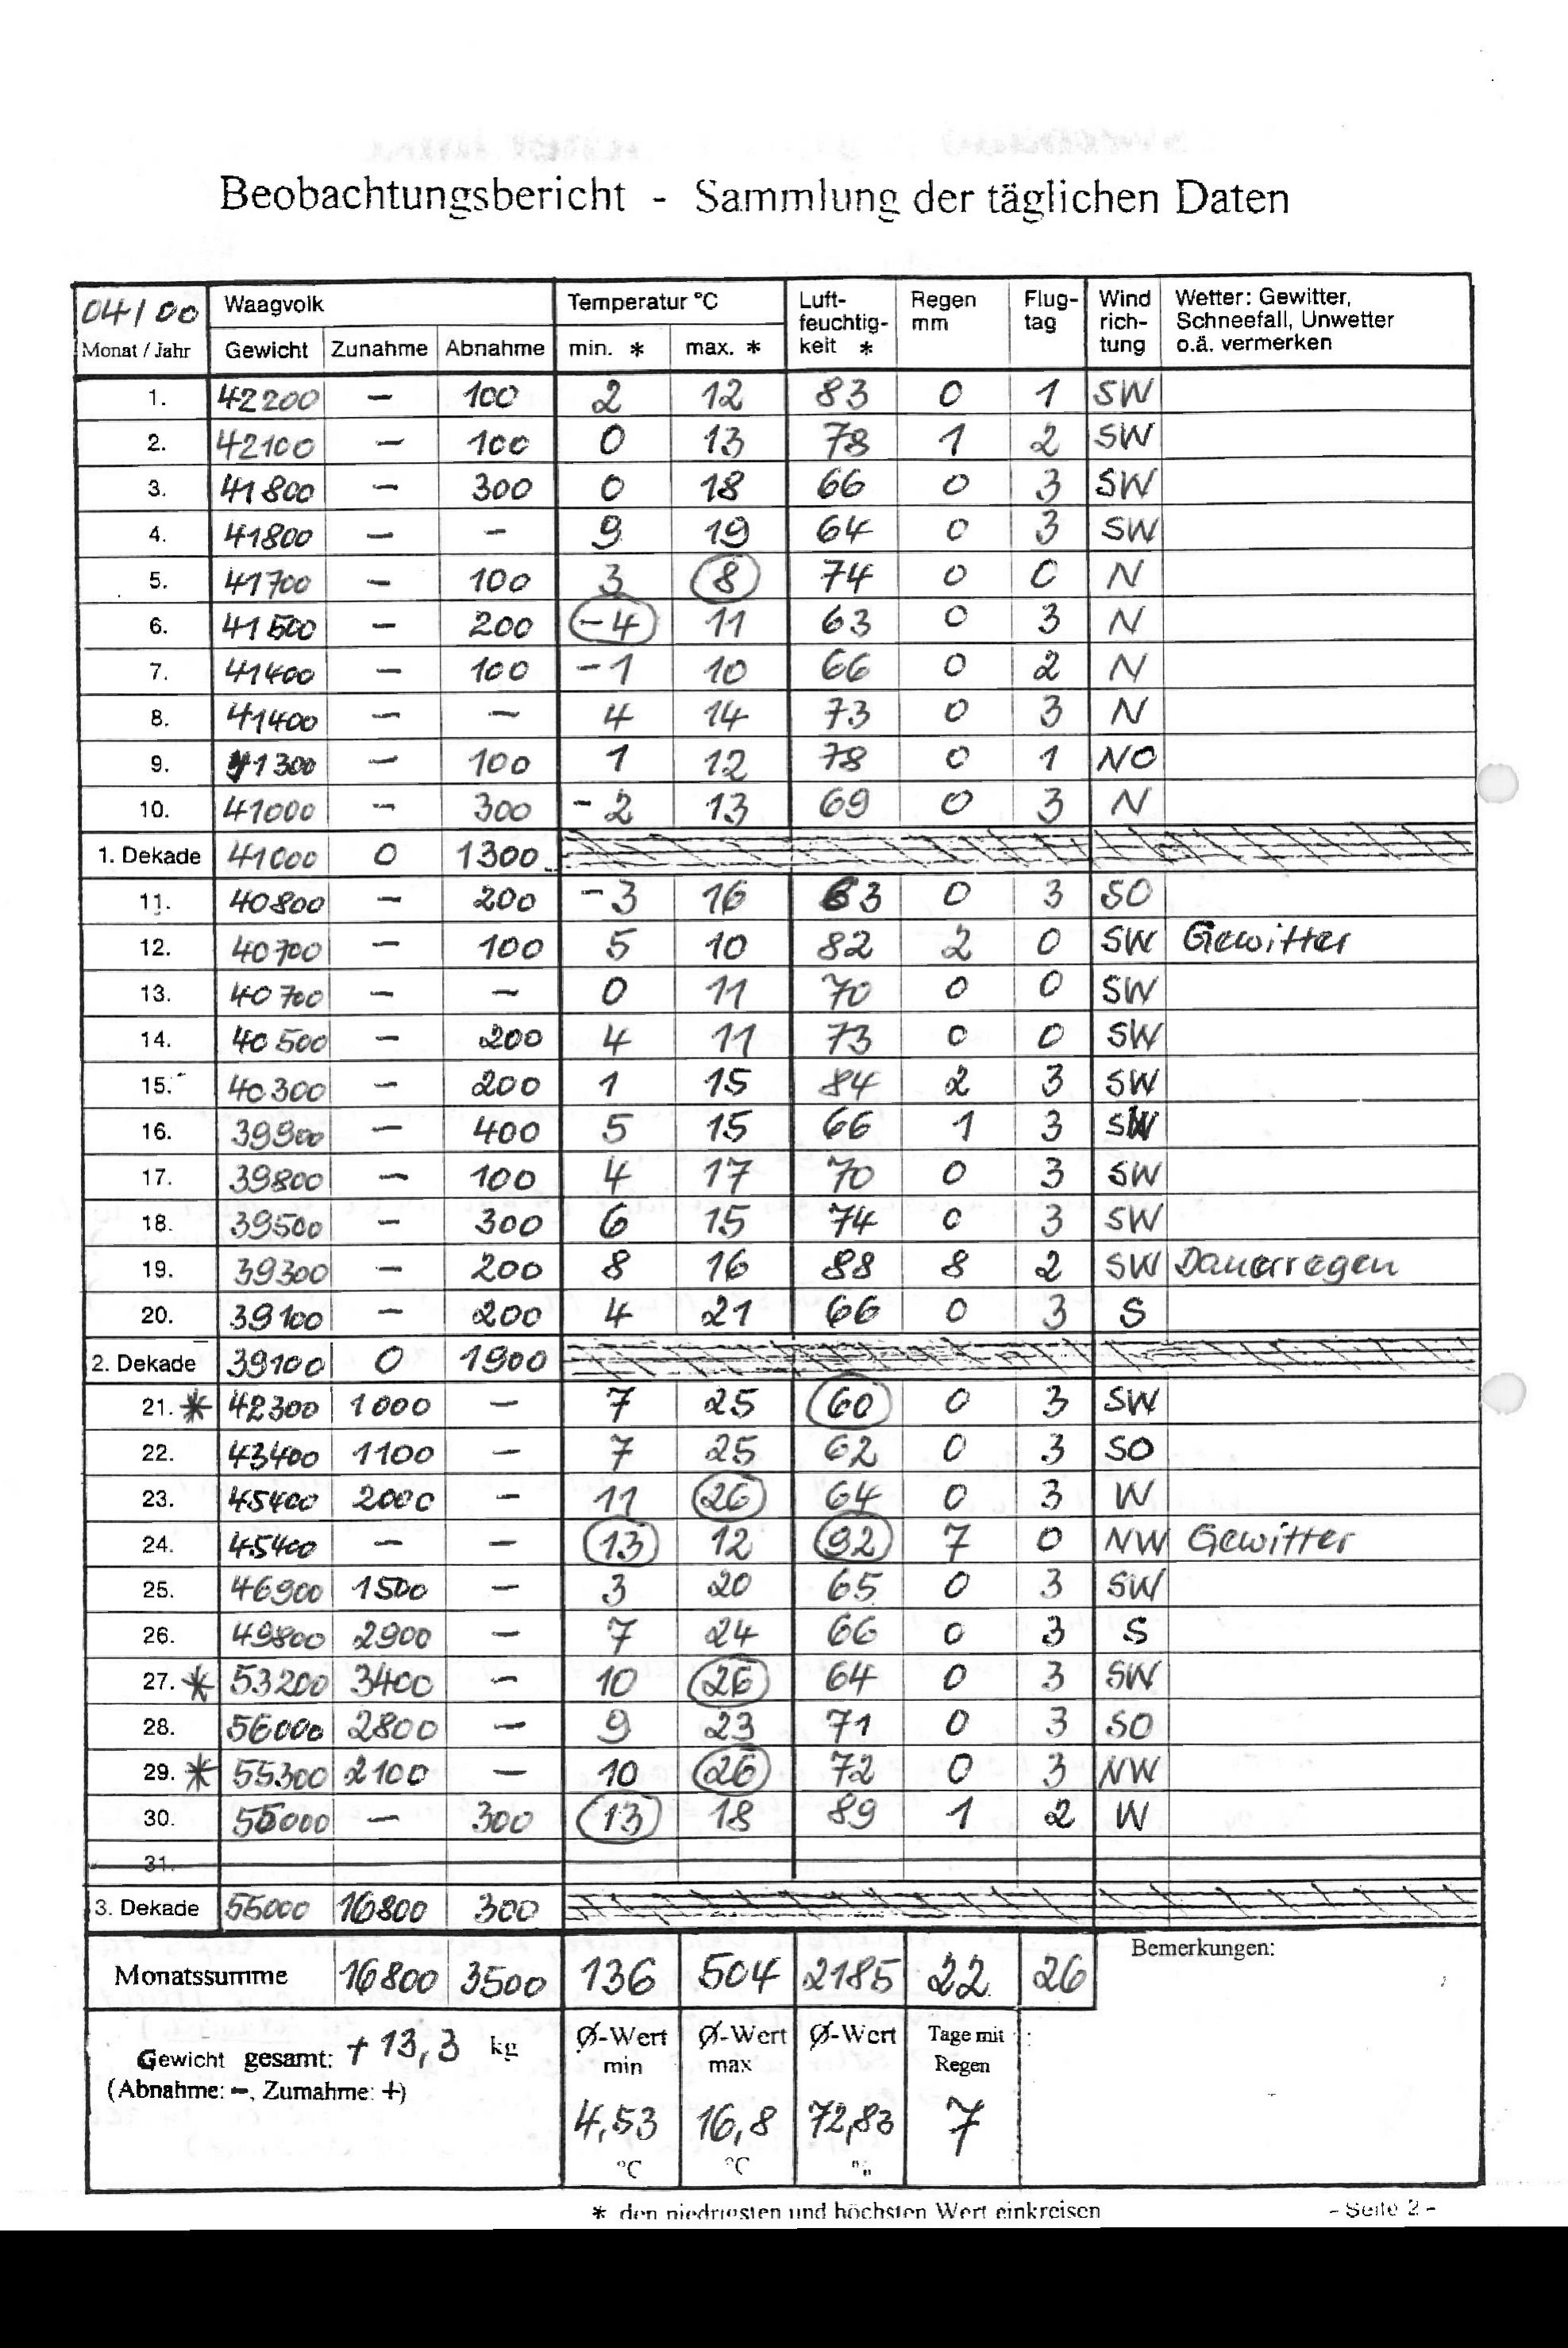 Beobachtungsbericht - Sammlung der täglichen Daten
04/00 Waagvolk Temperatur °C Luft- Regen Flug- Wind Wetter: Gewitter,
feuchtig- mm tag rich- Schneefall, Unwetter
Monat / Jahr Gewicht Zunahme Abnahme min. * max. * keit * tung o.ä. vermerken
1. 42200 — 100 2 12 83 0 1 SW
2. 42100 — 100 0 13 78 1 2 SW
3. 41800 — 300 0 18 66 0 3 SW
4. 41800 — — 9 19 64 0 3 SW
5. 41700 — 100 3 8 74 0 0 N
6. 41500 — 200 -4 11 63 0 3 N
7. 41400 — 100 -1 10 66 0 2 N
8. 41400 — — 4 14 73 0 3 N
9. 41300 — 100 1 12 78 0 1 NO
10. 41000 — 300 -2 13 69 0 3 N
1. Dekade 41000 0 1300
11. 40800 — 200 -3 16 63 0 3 SO
12. 40700 — 100 5 10 82 2 0 SW Gewitter
13. 40700 — — 0 11 70 0 0 SW
14. 40500 — 200 4 11 73 0 0 SW
15. 40300 — 200 1 15 84 2 3 SW
16. 39900 — 400 5 15 66 1 3 SW
17. 39800 — 100 4 17 70 0 3 SW
18. 39500 — 300 6 15 74 0 3 SW
19. 39300 — 200 8 16 88 8 2 SW Dauerregen
20. 39100 — 200 4 21 66 0 3 S
2. Dekade 39100 0 1900
21. * 42300 1000 — 7 25 60 0 3 SW
22. 43400 1100 — 7 25 62 0 3 SO
23. 45400 2000 — 11 26 64 0 3 W
24. 45400 — — 13 12 92 7 0 NW Gewitter
25. 46900 1500 — 3 20 65 0 3 SW
26. 49800 2900 — 7 24 66 0 3 S
27. * 53200 3400 — 10 26 64 0 3 SW
28. 56000 2800 — 9 23 71 0 3 SO
29. * 55300 2100 — 10 26 72 0 3 NW
30. 55000 — 300 13 18 89 1 2 W
31.
3. Dekade 55000 16800 300
Monatssumme 16800 3500 136 504 2185 22 26 Bemerkungen:
Gewicht gesamt: + 13,3 kg Ø-Wert Ø-Wert Ø-Wert Tage mit
(Abnahme: -, Zumahme: +) min max Regen
4,53 16,8 72,83 7
°C °C
* den niedrigsten und höchsten Wert einkreisen - Seite 2 -